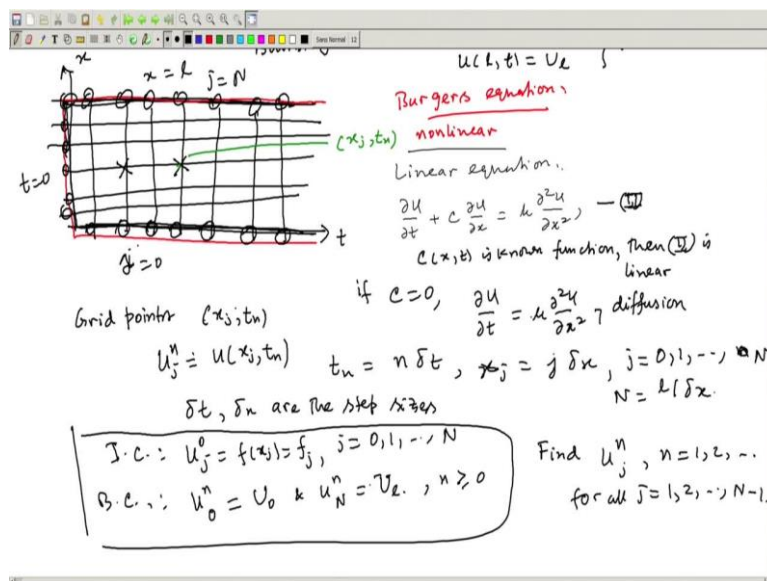 Sans Normal 12
x
x = l j = N
t=0
(xj, tn)
t
j=0
u(l,t) = Ul }
Burgers equation,
nonlinear
Linear equation..
∂u/∂t + c ∂u/∂x = μ ∂²u/∂x², — (II)
c(x,t) is known function, then (II) is
linear
if c=0, ∂u/∂t = μ ∂²u/∂x², diffusion
Grid points (xj, tn)
u_j^n ≐ u(xj, tn) tn = n δt, xj = j δx, j=0,1,--, N
N = l/δx.
δt, δx are the step sizes
I.C.: u_j^0 = f(xj) = fj, j=0,1,--, N
B.C.,: u_0^n = U0 & u_N^n = Ul. , n ≥ 0
Find u_j^n, n=1,2,--
for all j=1,2,--, N-1.